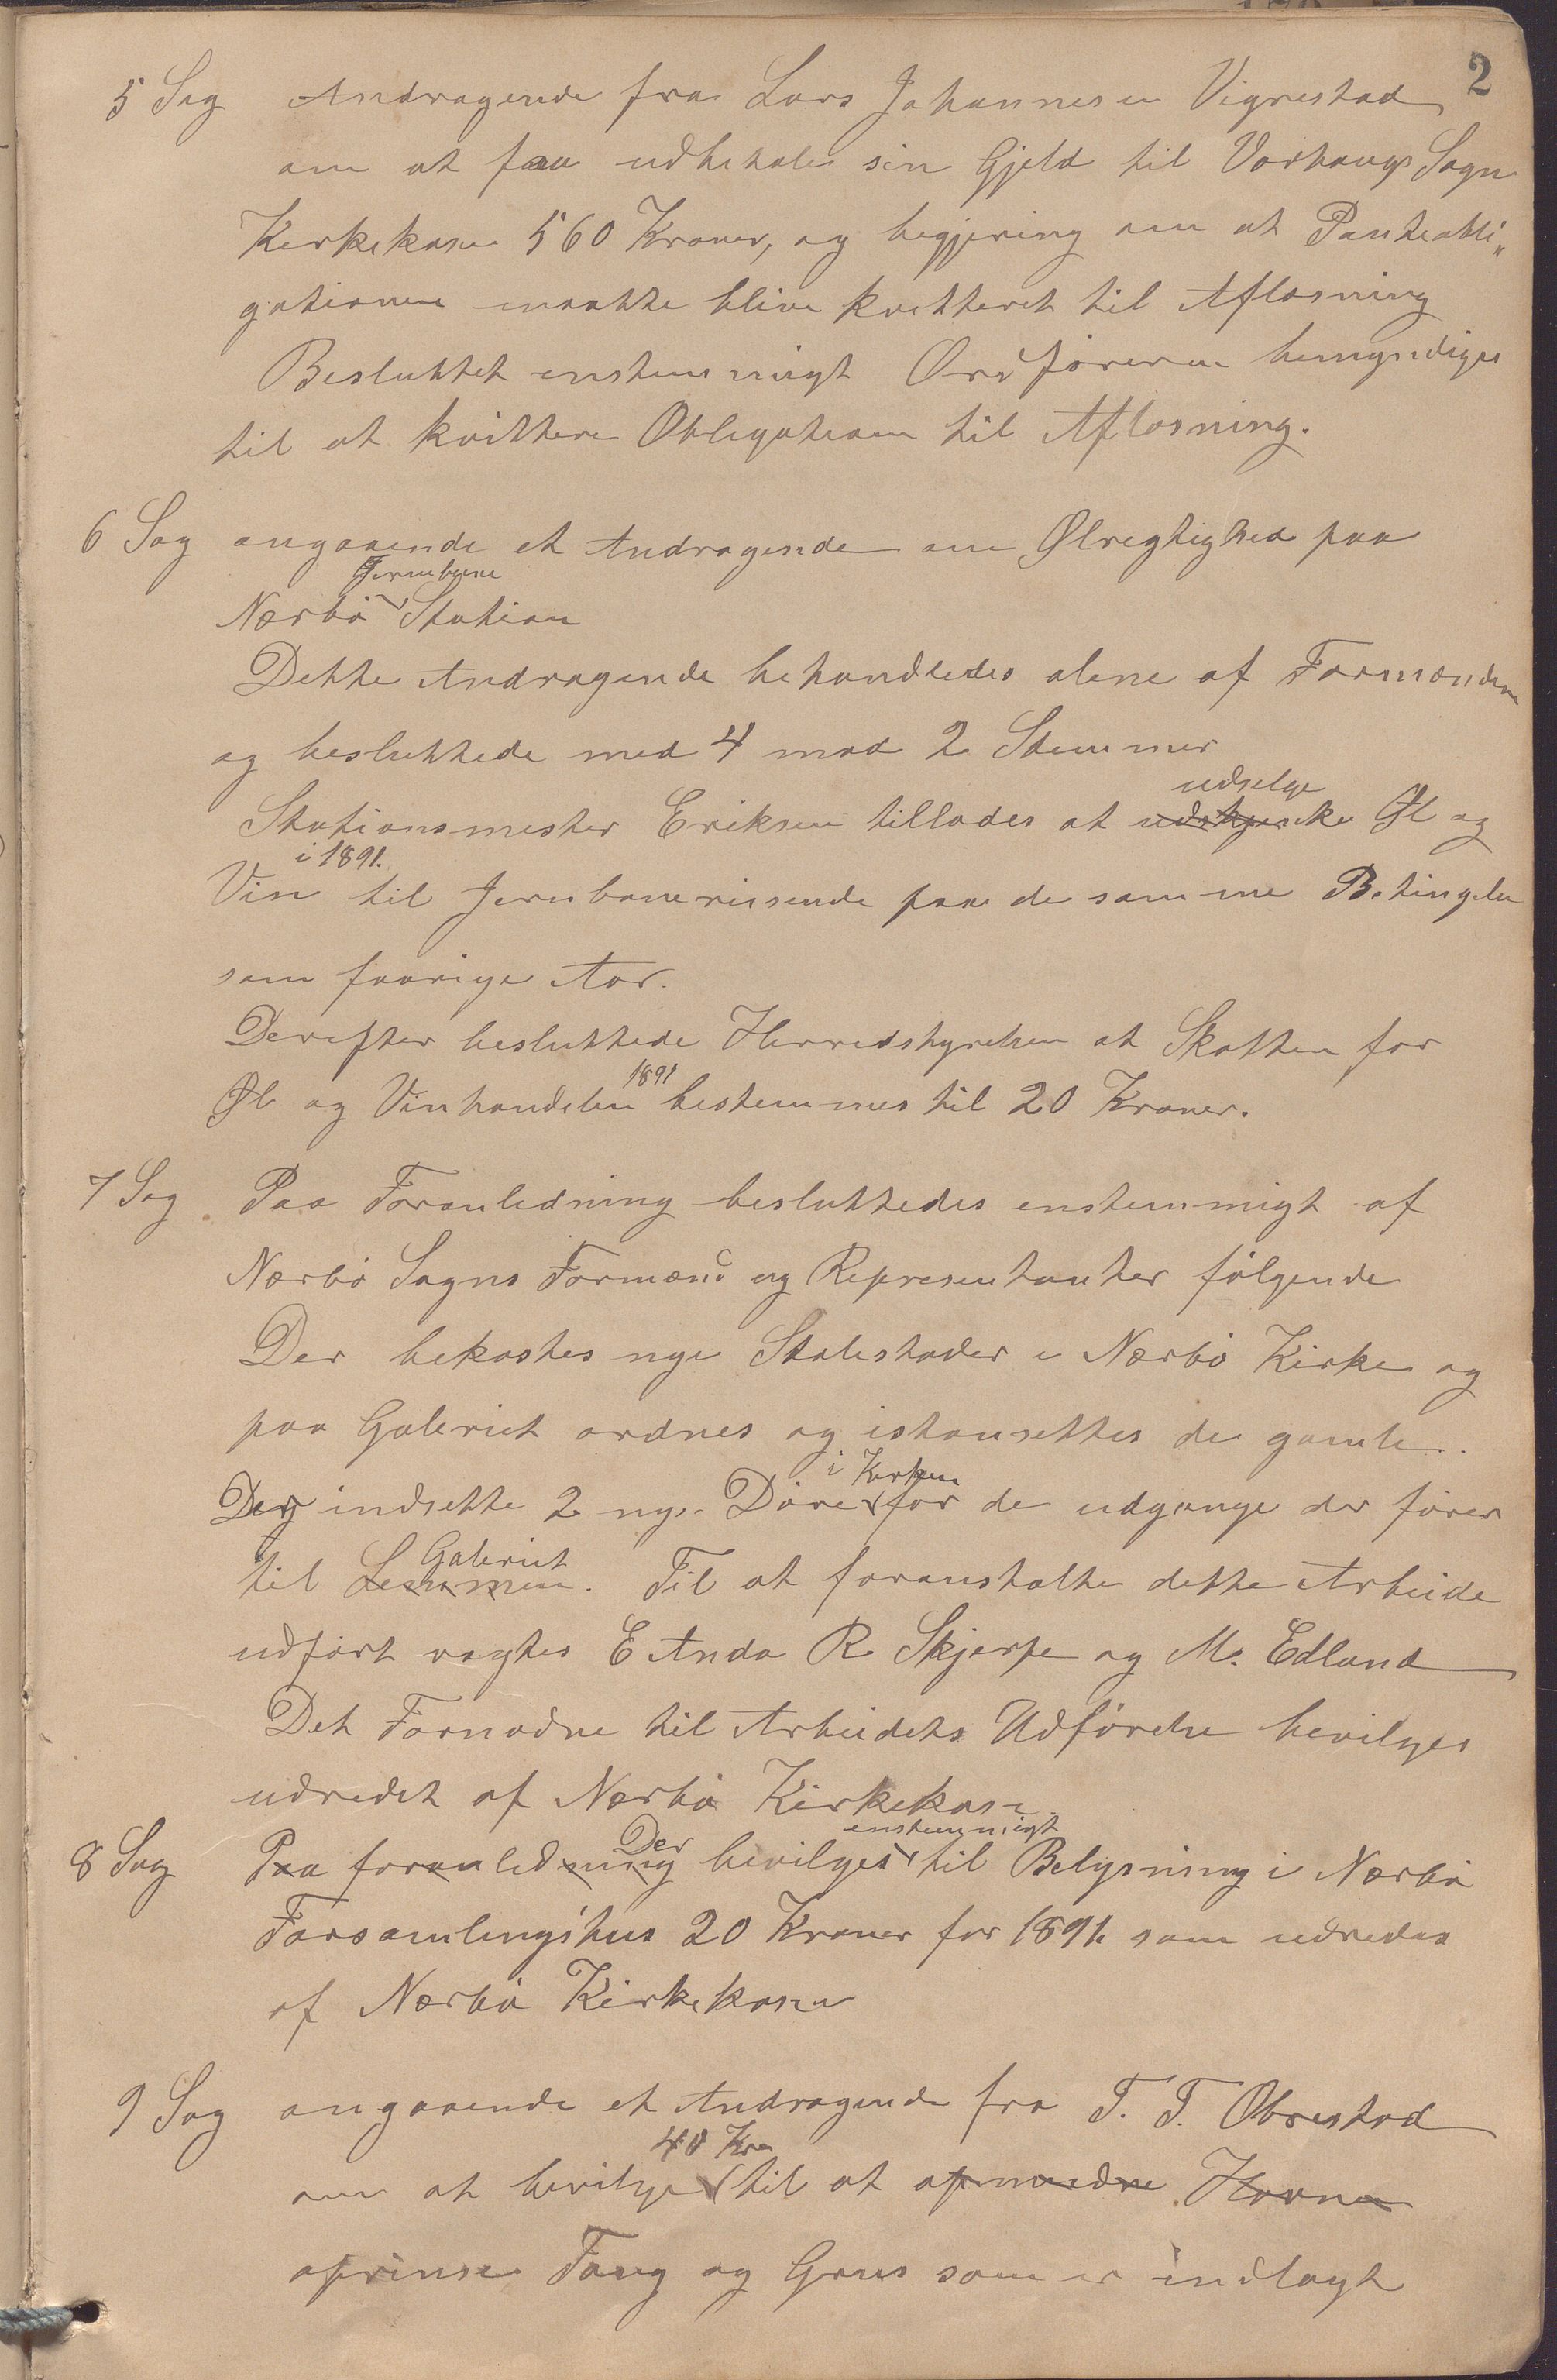 2
5 Sag Andragende fra Lars Johannesen Vigrestad
om at faa udbetale sin Gjeld til Varhaugs Sogn
Kirkekasse 560 Kroner, og begjering om at Panteobli„
gationen maatte blive kvitteret til Aflosning
Besluttet enstemmigt Ordføreren bemyndiges
til at kvittere Obligationen til Aflosning.
6 Sag angaaende et Andragende om Ølregtighed paa
Jernbane
Nærbø Station
Dette Andragende behandledes alene af Formændene
og besluttede med 4 mod 2 Stemmer
udselge
Stationsmester Eriksen tillades at udskjenke Øl og
i 1891.
Vin til Jernbanereisende paa de samme Betingelser
som forrige Aar.
Derefter besluttede Herredstyrelsen at Skatten for
1891
Øl og Vinhandelen bestemmes til 20 Kroner.
7 Sag Paa Foranledning besluttedes enstemmigt af
Nærbø Sogns Formænd og Representanter følgende
Der bekostes nye Stolestader i Nærbø Kirke og
paa Galeriet ordnes og istansettes de gamle.
i Kirken
Der indsette 2 nye Døre for de udgange der fører
Galeriet
til Lemmen. Til at foranstalte dette Arbeide
udført valgtes E Anda R Skjerpe og M. Edland
Det Fornødne til Arbeidets Udførelse bevilges
udredet af Nærbø Kirkekasse
Der enstemmigt
8 Sag Paa foranledning bevilges til Belysning i Nærbø
Forsamlingshus 20 Kroner for 1891 som udredes
af Nærbø Kirkekasse
9 Sag angaaende et Andragende fra T. T. Obrestad
40 Kr
om at bevilge til at opmudre Havnen
oprense Taug og Grus som er indlagt